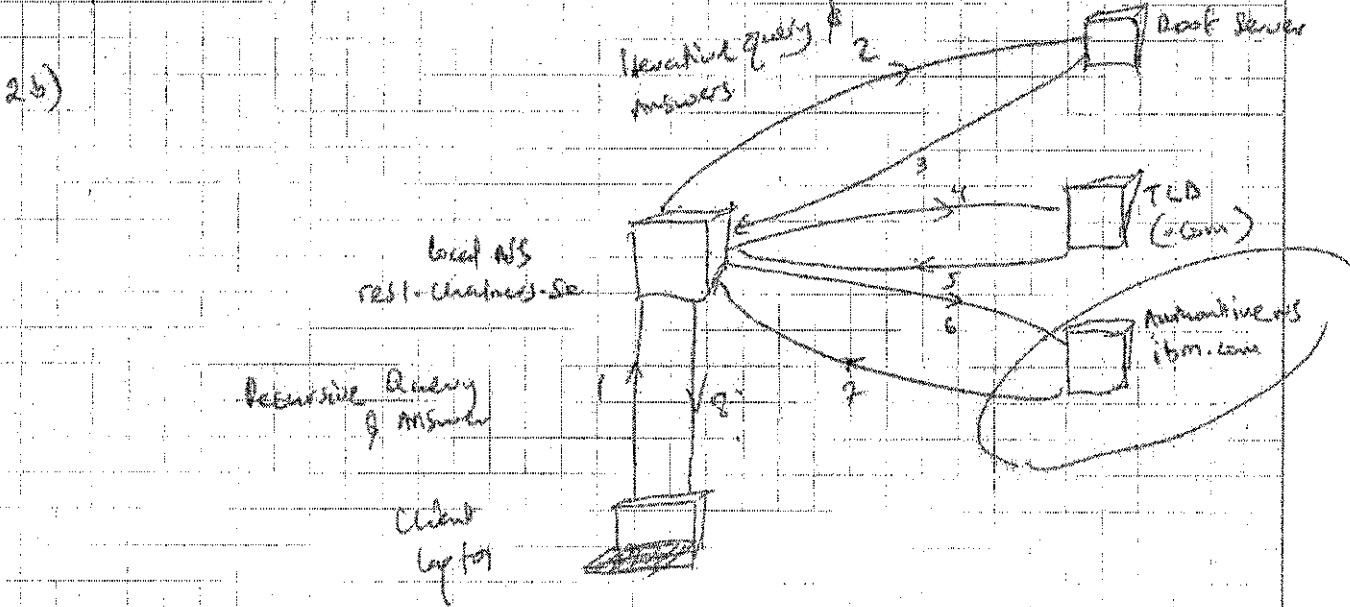 2b)
Iterative query &
Answers
2
Root Server
3
4
TLD
(.com)
Local NS
res1.chalmers.se
5
6
Authoritive NS
ibm.com
7
Recursive Query
& Answer
1
8
Client
laptop